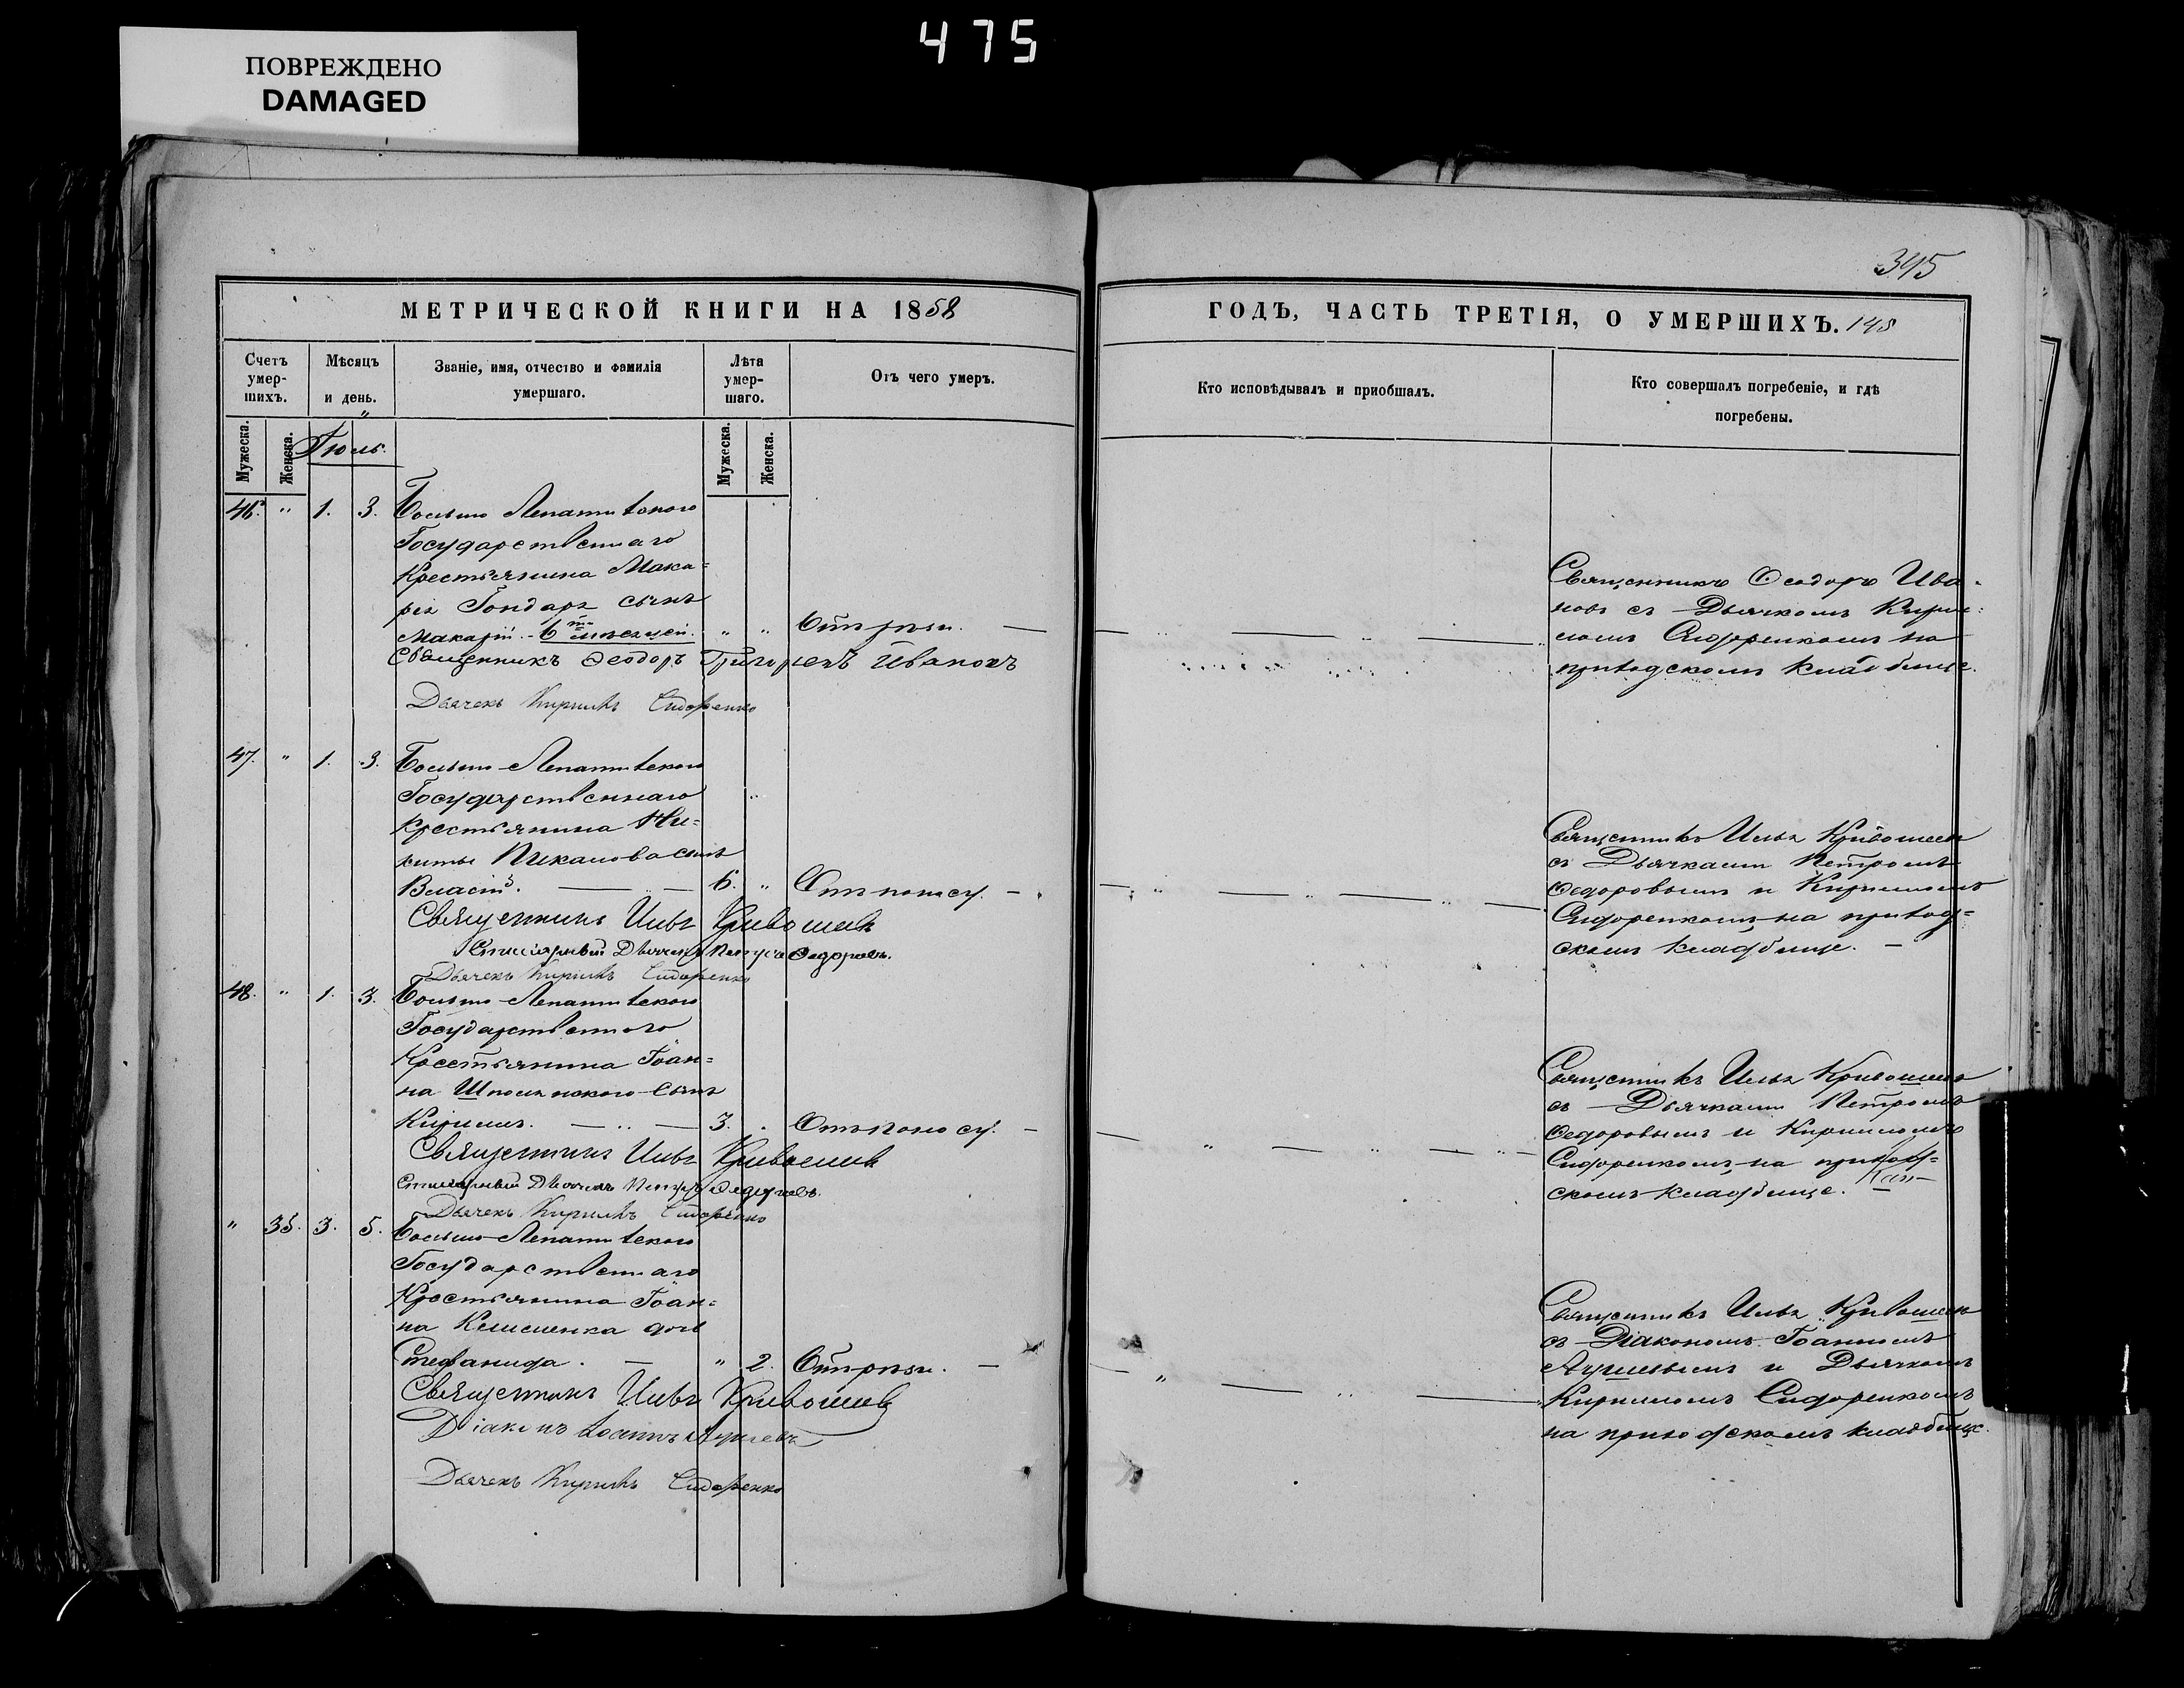 475
ПОВРЕЖДЕНО
DAMAGED
395
МЕТРИЧЕСКОЙ КНИГИ НА 1858
ГОДЪ, ЧАСТЬ ТРЕТІЯ, О УМЕРШИХЪ. 148
Счетъ умер-шихъ.
Мѣсяцъ и день.
Званіе, имя, отчество и фамилія умершаго.
Лѣта умер-шаго.
Отъ чего умеръ.
Кто исповѣдывалъ и пріобщалъ.
Кто совершалъ погребеніе, и гдѣ погребены.
Мужеска.
Женска.
Іюль.
Мужеска.
Женска.
46. " 1. 3. Больше Лепатихского
Государственнаго
Крестьянина Мака-
рія Гондаря сынъ
Макарій. 6ти мѣсяцей. " "
Священникъ Ѳеодоръ Григоріевъ Ивановъ
Дьячекъ Кириллъ Сидоренко
Священникъ Ѳеодоръ Ива-
новъ съ Дьячкомъ Кирил-
ломъ Сидоренкомъ на
приходскомъ кладбище.
47. " 1. 3. Больше-Лепатихского
Государственнаго
Крестьянина Ни-
киты сынъ
Власій. 6. " Отъ поносу.
Священникъ Илья Кривошеев
Дьячекъ Петръ Ѳедоровъ.
Дьячекъ Кириллъ Сидоренко
Священникъ Илья Кривошеев
съ Дьячками Петромъ
Ѳедоровымъ и Кирилломъ
Сидоренкомъ на приход-
скомъ кладбище.
48. " 1. 3. Больше-Лепатихского
Государственного
Крестьянина Іоан-
на Шполянского сынъ
Кириллъ. 3. Отъ поносу.
Священникъ Илья Кривошеев
Дьячекъ Петръ Ѳедоровъ.
Дьячекъ Кириллъ Сидоренко
Священникъ Илья Кривошеев
съ Дьячками Петромъ
Ѳедоровымъ и Кирилломъ
Сидоренкомъ на приход-
скомъ кладбище.
" 35. 3. 5. Больше-Лепатихского
Государственнаго
Крестьянина Іоан-
на дочь
Стефанида. " 2.
Священникъ Илья Кривошеев
Діаконъ Іоаннъ
Дьячекъ Кириллъ Сидоренко
Священникъ Илья Кривошеев
съ Діакономъ Іоанномъ
и Дьячкомъ
Кирилломъ Сидоренкомъ
на приходскомъ кладбище.